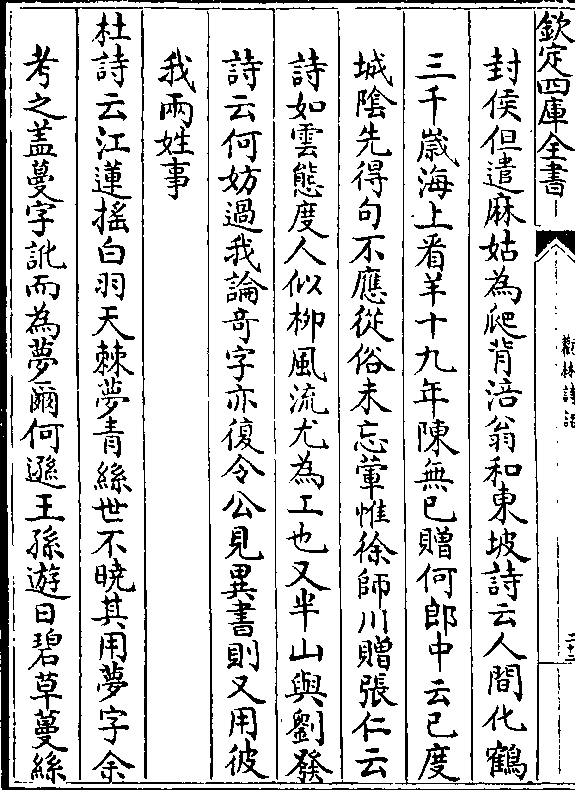 欽定四庫全書
觀林詩話
二十二
封侯但遣麻姑為爬背涪翁和東坡詩云人間化鶴
三千嵗海上看羊十九年陳無已贈何郎中云已度
城陰先得句不應從俗未忘葷惟徐師川贈張仁云
詩如雲態度人似柳風流尤為工也又半山與劉發
詩云何妨過我論竒字亦復令公見異書則又用彼
我兩姓事
杜詩云江蓮揺白羽天棘夢青絲世不曉其用夢字余
考之盖蔓字訛而為夢爾何遜王孫遊曰碧草蔓絲